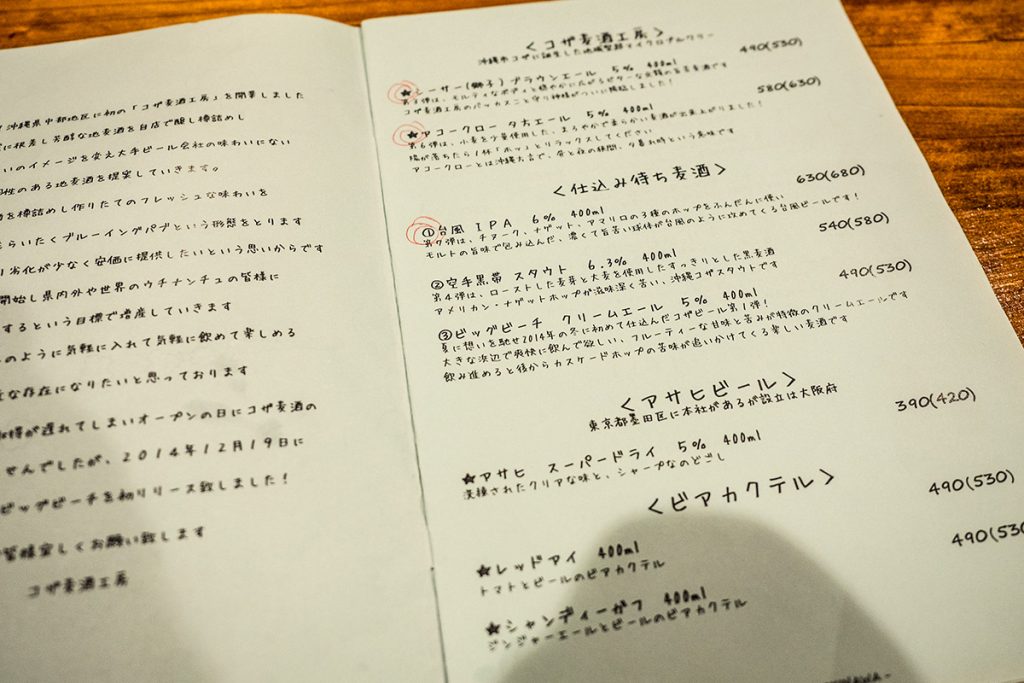 沖縄県中部地区に初の「コザ麦酒工房」を開業しました
に根差し芳醇な地麦酒を自店で醸し樽詰めし
いのイメージを変え大手ビール会社の味わいにない
性のある地麦酒を提案していきます。
を樽詰めし作りたてのフレッシュな味わいを
らいたくブルーイングパブという形態をとります
劣化が少なく安価に提供したいという思いからです
開始し県内外や世界のウチナンチュの皆様に
するという目標で増産していきます
のように気軽に入れて気軽に飲めて楽しめる
な存在になりたいと思っております
取得が遅れてしまいオープンの日にコザ麦酒の
せんでしたが、2014年12月19日に
ビッグビーチを初リリース致しました!
皆様宜しくお願い致します
コザ麦酒工房
<コザ麦酒工房>
沖縄市コザに誕生した地域密着マイクロブルワリー
★シーサー(獅子)ブラウンエール 5% 400ml 490(530)
第3弾は、モルティなボディと穏やかに広がるビターな余韻の旨苦麦酒です
コザ麦酒工房のバッカスこと守り神様がついに降臨しました!
★アコークロー 夕方エール 5% 400ml 580(630)
第6弾は、小麦を少量使用した、まろやかで柔らかい麦酒が出来上がりました!
陽が落ちたら1杯「ホッ」とリラックスしてください
アコークローとは沖縄方言で、昼と夜の狭間、夕暮れ時という意味です
<仕込み待ち麦酒>
①台風 IPA 6% 400ml 630(680)
第7弾は、チヌーク、ナゲット、アマリロの3種のホップをふんだんに使い
モルトの旨味で包み込んだ、濃くて旨苦い球体が台風のように攻めてくる台風ビールです!
②空手黒帯 スタウト 6.3% 400ml 540(580)
第4弾は、ローストした麦芽と大麦を使用したすっきりとした黒麦酒
アメリカン・ナゲットホップが滋味深く苦い、沖縄コザスタウトです
③ビッグビーチ クリームエール 5% 400ml 490(530)
夏に想いを馳せ2014年の冬に初めて仕込んだコザビール第1弾!
大きな浜辺で爽快に飲んで欲しい、フルーティーな甘味と苦みが特徴のクリームエールです
飲み進めると後からカスケードホップの苦味が追いかけてくる楽しい麦酒です
<アサヒビール>
東京都墨田区に本社があるが設立は大阪府
★アサヒ スーパードライ 5% 400ml 390(420)
洗練されたクリアな味と、シャープなのどごし
<ビアカクテル>
★レッドアイ 400ml 490(530)
トマトとビールのビアカクテル
★シャンディーガフ 400ml 490(530
ジンジャーエールとビールのビアカクテル